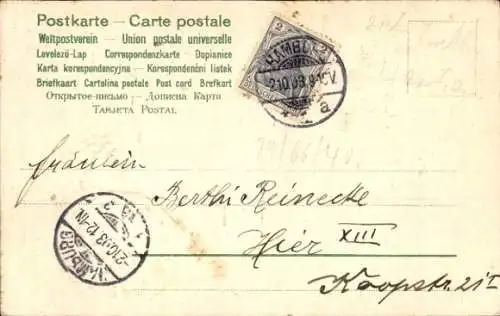 Postkarte — Carte postale
Weltpostverein — Union postale universelle
Levelező-Lap Correspondenzkarte Dopisnice
Karta korespondencyjna — Korespondenční listek
Briefkaart Cartolina postale Post card Brefkort
Открытое письмо — Дописна Карта
Tarjeta Postal
2
HAMBURG
a
Fräulein
Berthi Reinecke
Hier XIII
Koopstr. 21 I
HAMBURG